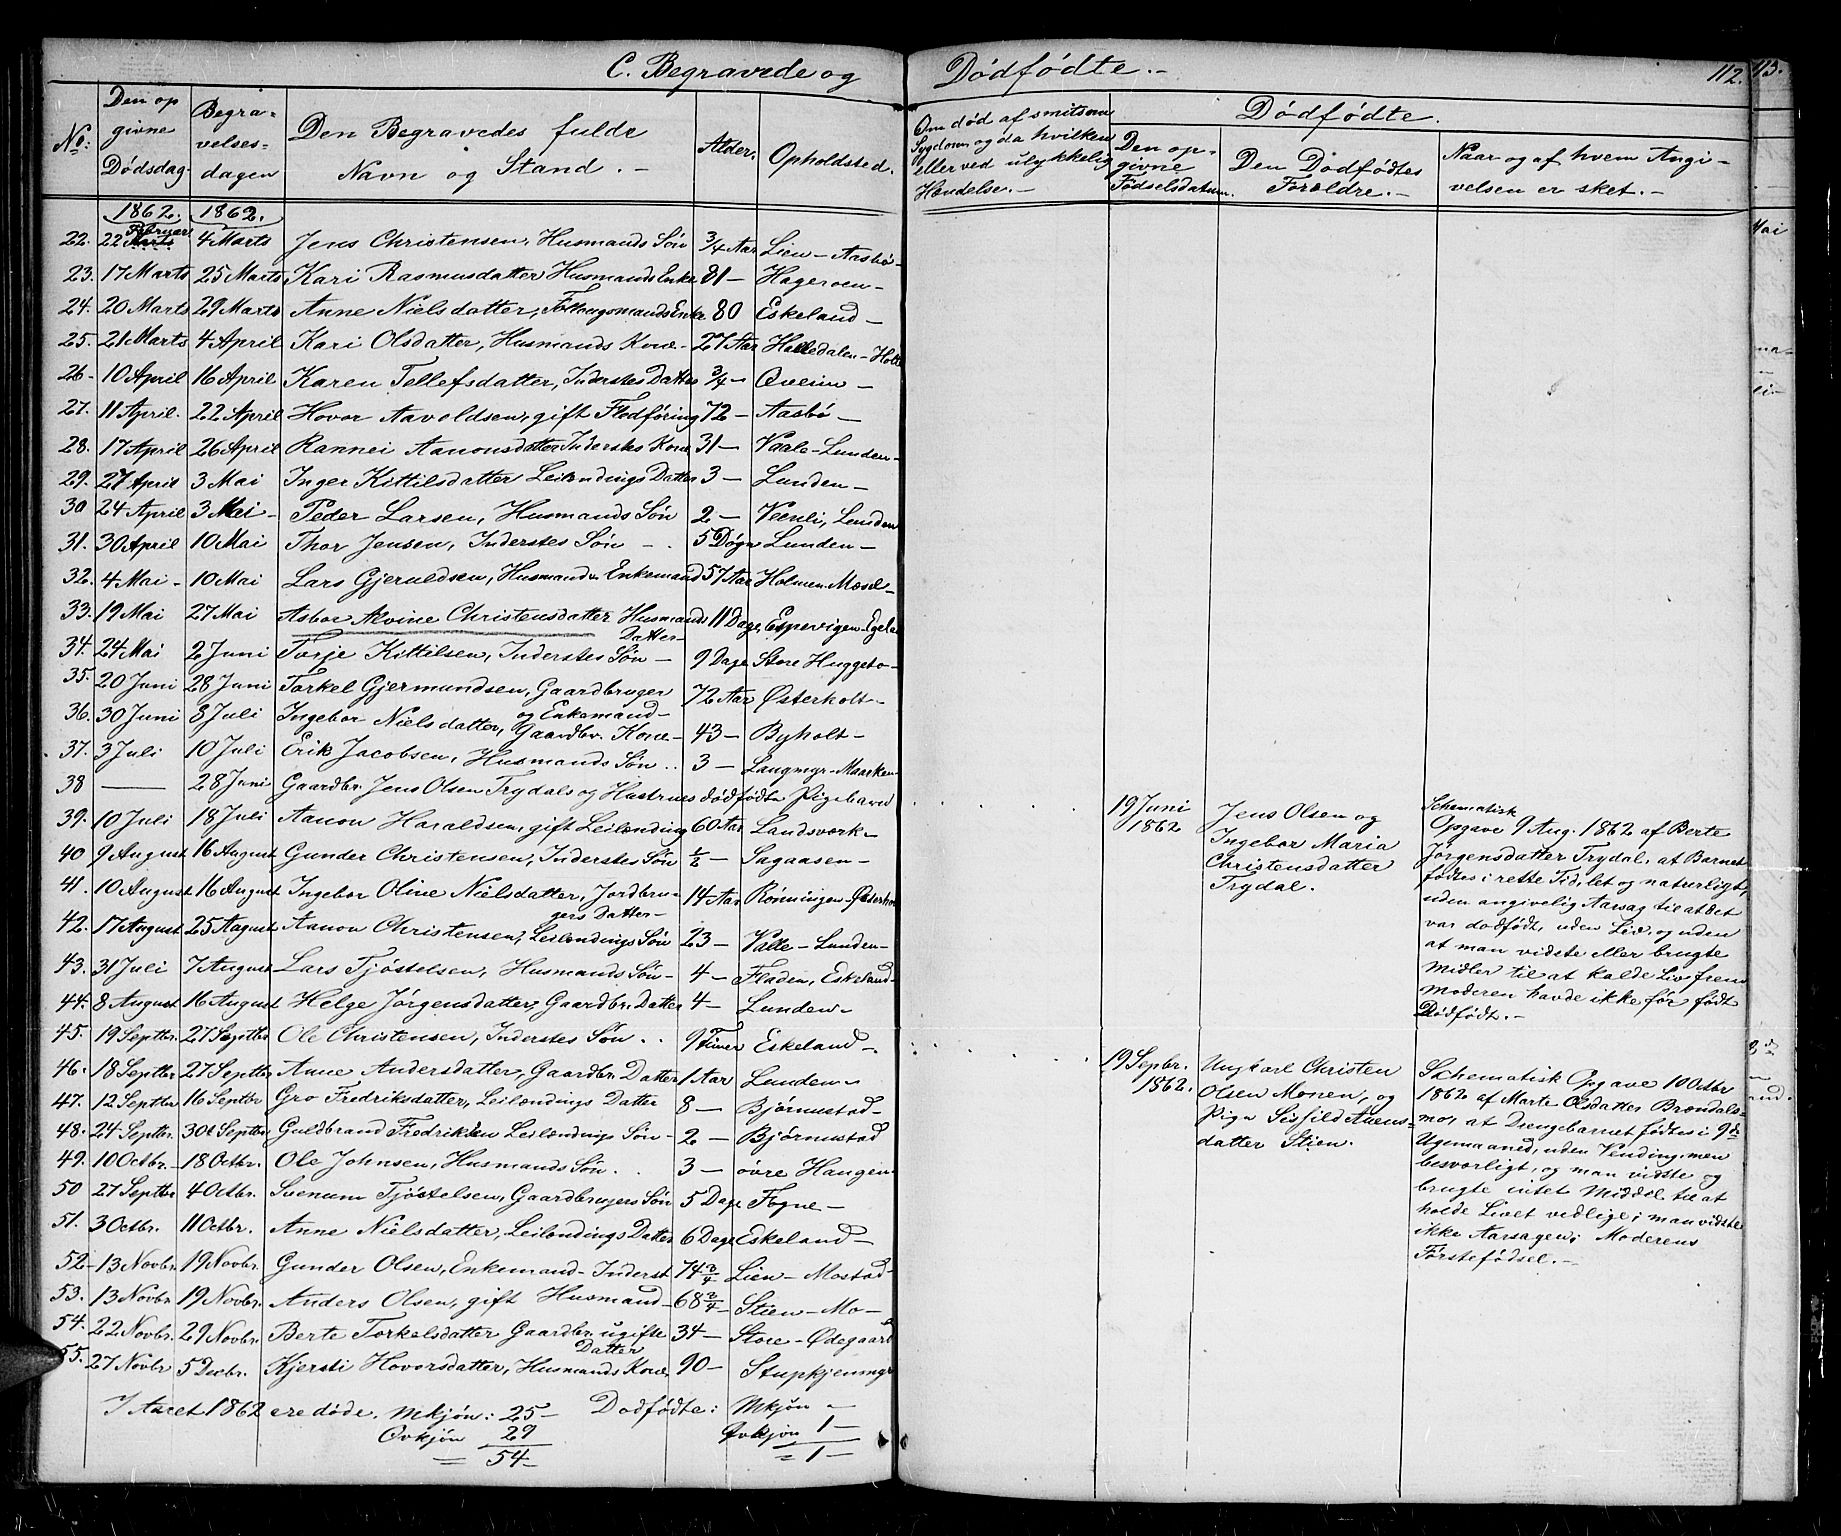 C. Begravede og
No:
Den op
givne
Dødsdag
Begra-
velses-
dagen
Den Begravedes fulde
Navn og Stand. -
Alder.
Opholdsted.
1862. 1862.
22. 22 Februar 4 Marts Jens Christensen, Husmands Søn 3/4 Aar Lien - Aasbø -
23. 17 Marts 25 Marts Kari Rasmusdatter Husmands Enke 81 - Hageroen -
24. 20 Marts 29 Marts Anne Nielsdatter, Enke 80 Eskeland -
25. 21 Marts 4 April Kari Olsdatter, Husmands Kone - 27 Aar Halledalen - Holt
26 - 10 April 16 April Karen Tellefsdatter, Inderstes Datter 3/4 -
27. 11 April. 22 April Hovor Aavoldsen, gift Flodføring 72 - Aasbø -
28. 17 April 26 April Rannei Aanonsdatter Inderstes Kone 31 - Vaale - Lunden -
29. 27 April 3 Mai Inger Kittilsdatter Leilændings Datter 3 - Lunden -
30 24 April 3 Mai - Peder Larsen, Husmands Søn 2 - Veenli, Lunden
31. 30 April 10 Mai Thor Jensen, Inderstes Søn - . 5 Døgn Lunden -
32. 4 Mai - 10 Mai Lars Gjeruldsen, Husmand Enkemand 57 Aar Holmen - Mæsel -
33. 19 Mai 27 Mai Asbor Alvine Christensdatter Husmands 11 Dage Espevigen - Egeland
Datter -
34. 24 Mai 2 Juni Torje Kittilsen, Inderstes Søn - 9 Dage Store Huggeto -
35. 20 Juni 28 Juni Torkel Gjermundsen, Gaardbruger 72 Aar Østerholt -
og Enkemand -
36. 30 Juni 8 Juli Ingebor Nielsdatter, Gaardbr. Kone - 43 - Byholt -
37. 3 Juli 10 Juli Erik Jacobsen, Husmands Søn .. 3 - Langmyr - Maarken -
38 — 28 Juni Gaardbr. Jens Olsen Trydals og Hustrues dødfødte Pigebarn
39. 10 Juli 18 Juli Aanon Haraldsen, gift Leilænding 60 Aar Landsværk -
40 9 August 16 August Gunder Christensen, Inderstes Søn 1/2 - Sagaasen -
41. 10 August 16 August Ingebor Oline Nielsdatter, Jordbru- 14 Aar Rønningen - Østerholt
gers Datter -
42. 17 August 25 August Aanon Christensen, Leilændings Søn 23 - Valle - Lunden -
43. 31 Juli 7 August Lars Tjøstelsen, Husmands Søn - 4 - Fladen, Eskeland -
44. 8 August 16 August Helge Jørgensdatter, Gaardbr. Datter 4 - Lunden -
45. 19 Septbr. 27 Septbr Ole Christensen, Inderstes Søn . . 9 Timer Eskeland -
46. 18 Septbr 27 Septbr Anne Andersdatter, Gaardbr. Datter 1 Aar Lunden -
47. 12 Septbr 16 Septbr Gro Fredriksdatter, Leilændings Datter 8 - Bjørnustad -
48. 24 Septbr. 30 Septbr. Guldbrand Fredriksen Leilændings Søn - 2 - Bjørnustad
49. 10 Octbr. - 18 Octbr. Ole Johnsen, Husmands Søn . . 3 - øvre Haugen -
50 27 Septbr 4 Octbr. Svenum Tjøstelsen, Gaardbrugers Søn 5 Dage Fogne -
51. 3 Octbr. 11 Octbr. Anne Nielsdatter, Leilændings Datter 6 Dage Eskeland -
52 - 13 Novbr. 19 Novbr. Gunder Olsen, Enkemand - Inderst 74 3/4 Lien - Mostad -
53. 13 Novbr 19 Novbr. Anders Olsen, gift Husmand - 68 3/4 - Stien - Mo -
54. 22 Novbr. 29 Novbr. Berte Torkelsdatter Gaardbr. ugifte 34 - Store - Ødegaard
Datter
55. 27 Novbr 5 Decbr. Kjersti Hovorsdatter, Husmands Kone 90 - Stupkjenmyr
I Aaret 1862 ere døde. Mkjøn: 25 - Dødfødte: Mkjøn -
Qvkjøn 29 Qvkjøn 1 -
= 54 - = 1 -
Dødfødte. -
112.
113.
Om død af smitsom
Sygdom og da hvilken
eller ved ulykkelig
Hændelse. -
Dødfødte.
Den op-
givne
Fødselsdatum.
Den Dødfødtes
Forældre. -
Naar og af hvem Angi-
velsen er sket. -
19 Juni
1862
Jens Olsen og
Ingebor Maria
Christensdatter
Trydal.
Schematisk
Opgave 9 Aug. 1862 af Berte
Jørgensdatter Trydal, at Barnet
fødtes i rette Tid, let og naturligt,
uden angivelig Aarsag til at det
var dødfødt, uden Liv, og uden
at man vidste eller brugte
Midler til at kalde Liv frem
Moderen havde ikke før født
Dødfødt. -
19 Sepbr.
1862.
Ungkarl Christen
Olsen Monen, og
Pige Sigfild Auens-
datter Stien.
Schematisk Opgave 10 Octbr
1862 af Marte Olsdatter Brøndals-
mo, at Drengebarnet fødtes i 9de
Ugemaaned, uden Vending, men
besværligt, og man vidste og
brugte intet Middel til at
holde Livet vedlige; man vidste
ikke Aarsagen; Moderens
Førstefødsel. -
Mai